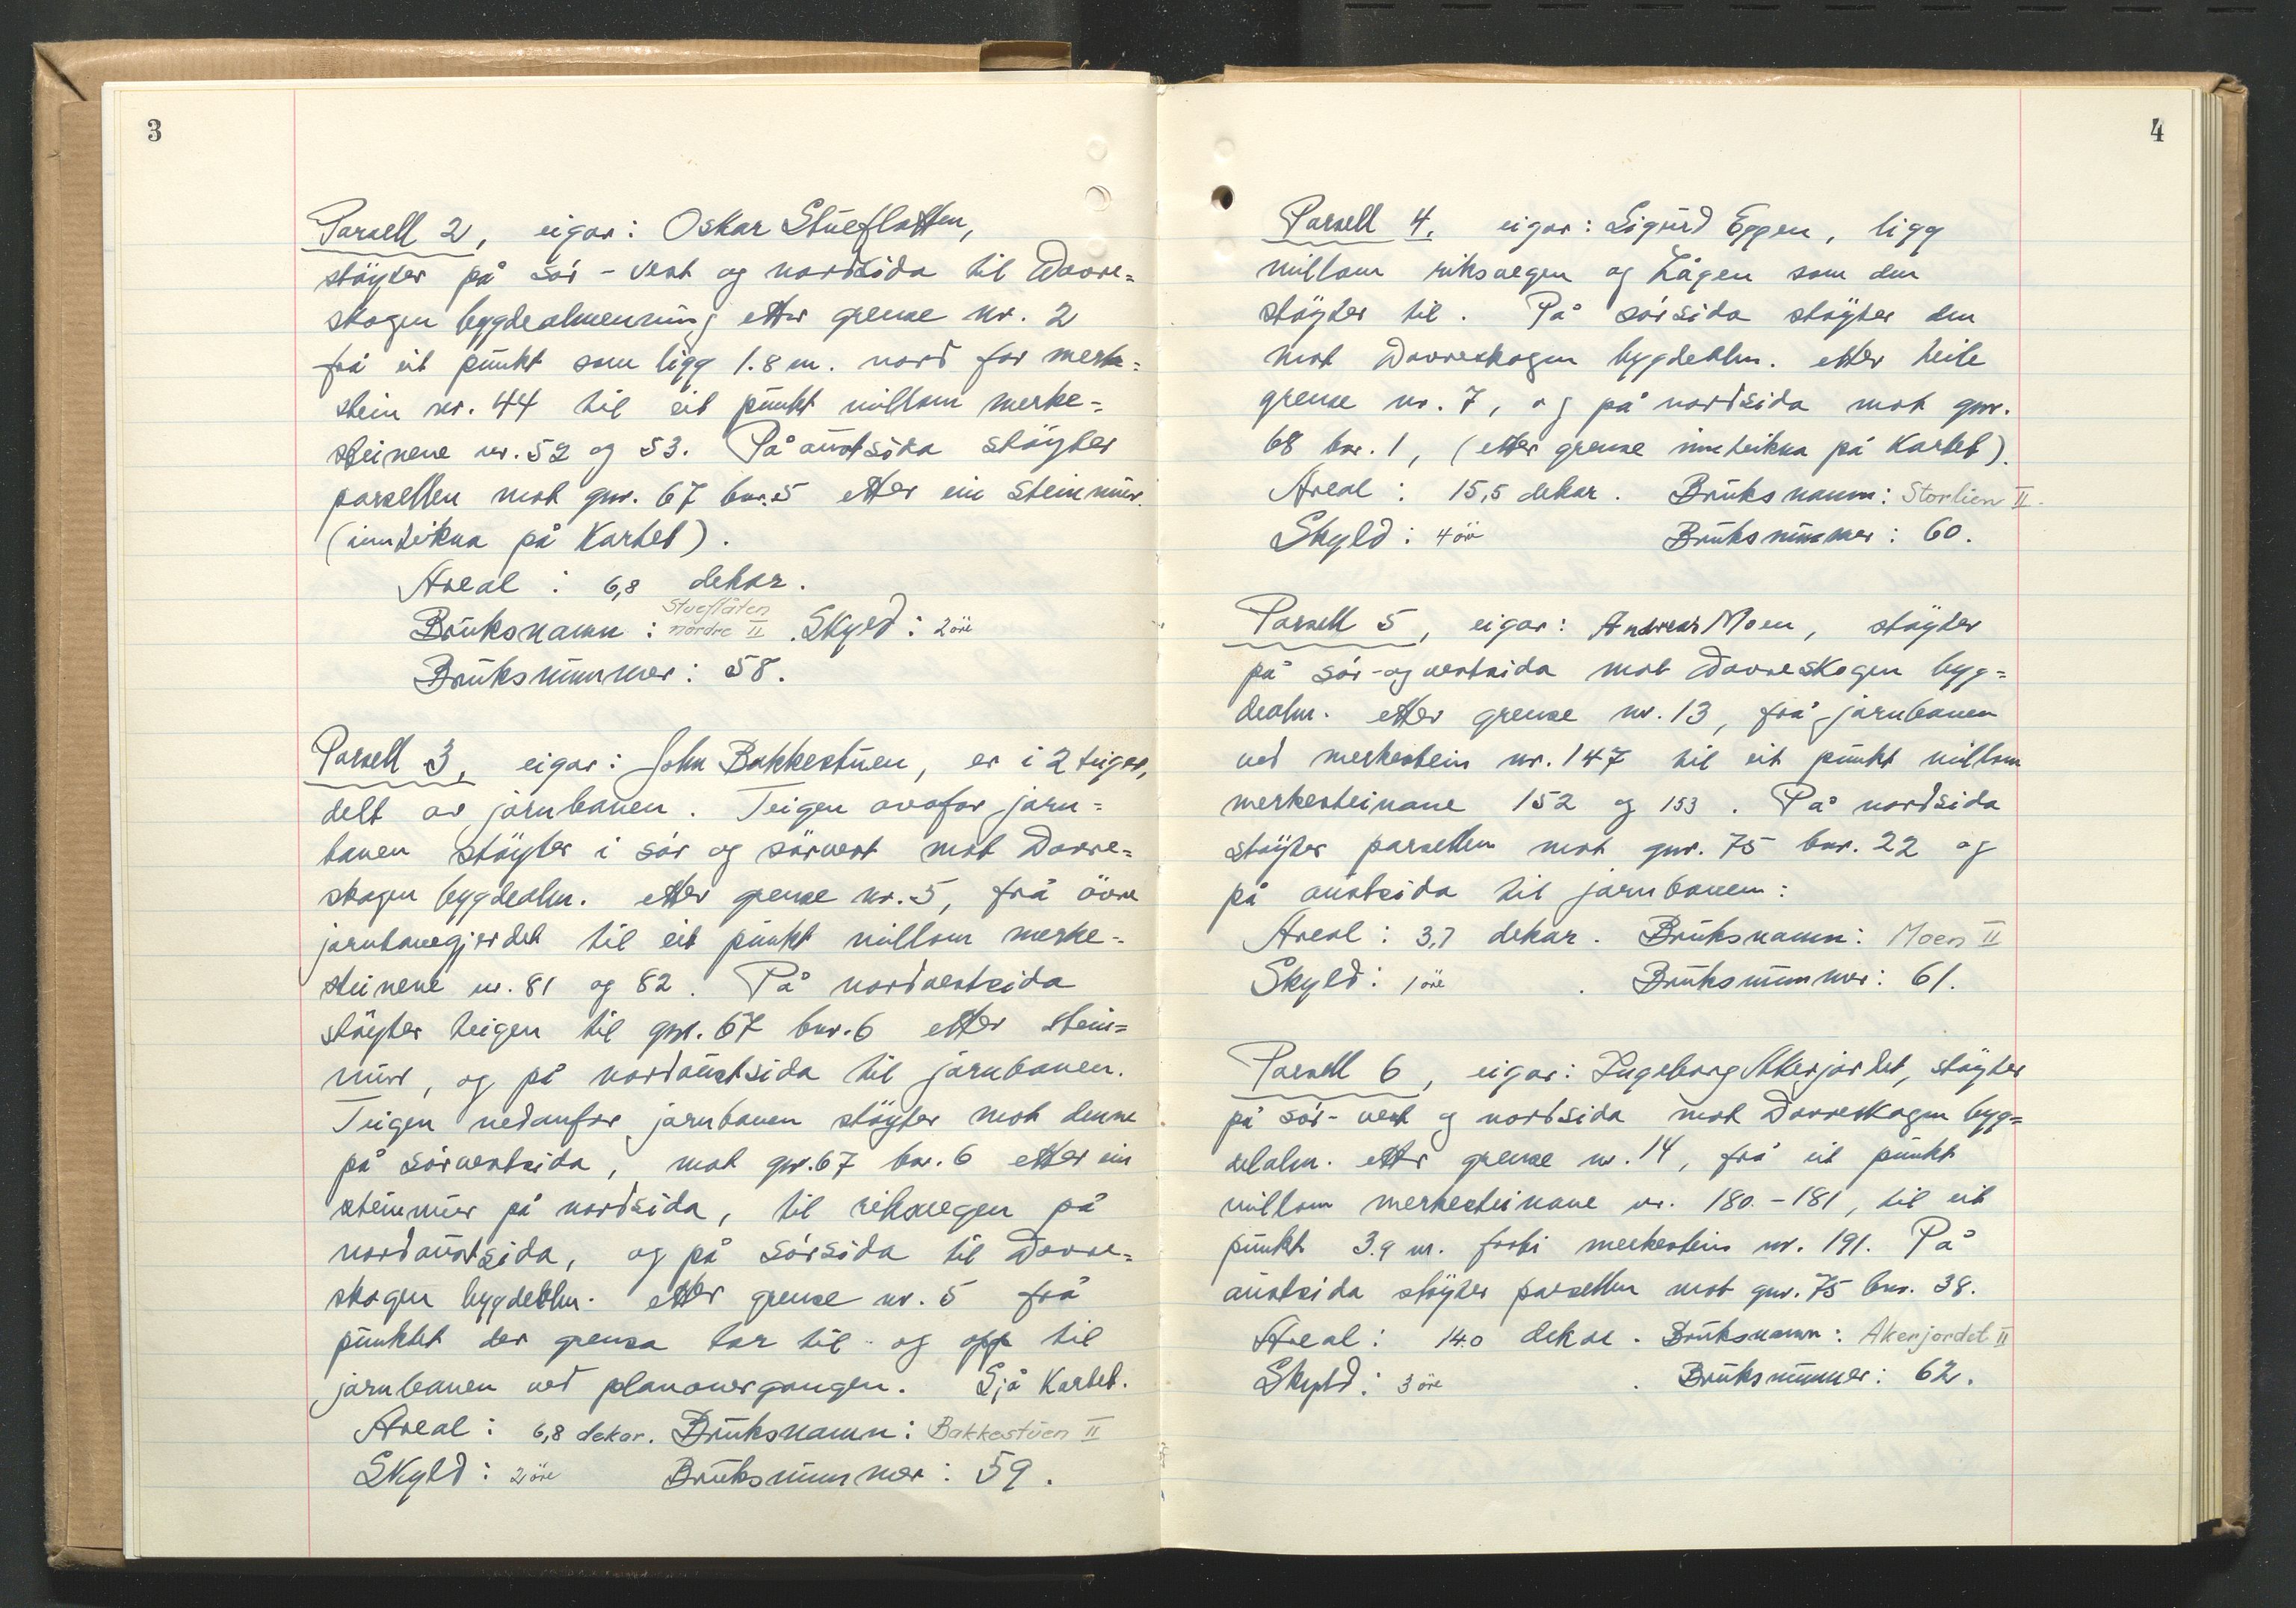 3
Parsell 2, eigar: Oskar Stueflotten,
stöyter på sör - vest og nordsida til Dovre=
skogen bygdealmenning etter grense nr. 2
frå eit punkt som ligg 1.8 m. nord for merke=
stein nr. 44 til eit punkt millom merke-
steinene nr. 52 og 53. På austsida stöyter
parsellen mot gnr. 67 bnr. 5 etter ein steinmur.
(innteikna på Kartet).
Areal : 6,8 dekar.
Stueflåten
Bruksnamn : nordre II . Skyld : 2 öre
Bruksnummer : 58.
Parsell 3, eigar : John Bakkestuen, er i 2 teiger,
delt av jarnbanen. Teigen ovafor jarn=
banen stöyter i sör og sörvest mot Dovre=
skogen bygdealm. etter grense nr. 5, frå övre
jarnbanegjerdet til eit punkt millom merke-
steinene nr. 81 og 82. På nordvestsida
stöyter teigen til gnr. 67 bnr. 6 etter stein=
mur, og på nordaustsida til jarnbanen.
Teigen nedanfor jarnbanen stöyter mot denne
på sörvestsida, mot gnr. 67 bnr. 6 etter ein
steinmur på nordsida, til riksvegen på
nordaustsida, og på sörsida til Dovre=
skogen bygdealm. etter grense nr. 5 frå
punktet der grensa tar til og opp til
jarnbanen ved planovergangen. Sjå Kartet.
Areal : 6,8 dekar. Bruksnamn : Bakkestuen II
Skyld : 2 öre Bruksnummer : 59.
4
Parsell 4. eigar : Sigurd Eggen, ligg
millom riksvegen og Lågen som den
stöyter til. På sörsida stöyter den
mot Dovreskogen bygdealm. etter heile
grense nr. 7, og på nordsida mot gnr.
68 bnr. 1, (etter grense innteikna på Kartet).
Areal : 15,5 dekar. Bruksnamn : Storlien II.
Skyld : 4 öre Bruksnummer : 60.
Parsell 5, eigar : Andreas Moen, stöyter
på sör- og vestsida mot Dovreskogen byg=
dealm. etter grense nr. 13, frå jarnbanen
ved merkestein nr. 147 til eit punkt millom
merkesteinane 152 og 153. På nordsida
stöyter parsellen mot gnr. 75 bnr. 22 og
på austsida til jarnbanen :
Areal : 3,7 dekar. Bruksnamn : Moen II
Skyld : 1 öre . Bruksnummer : 61.
Parsell 6, eigar : Ingeborg Akerjordet, stöyter
på sör- vest og nordsida mot Dovreskogen byg=
dealm. etter grense nr. 14, frå eit punkt
millom merkesteinane nr. 180.-181, til eit
punkt 3.9 m. forbi merkestein nr. 191. På
austsida stöyter parsellen mot gnr. 75 bnr. 38.
Areal : 14.0 dekar. Bruksnamn : Akerjordet II
Skyld : 3 öre . Bruksnummer : 62.